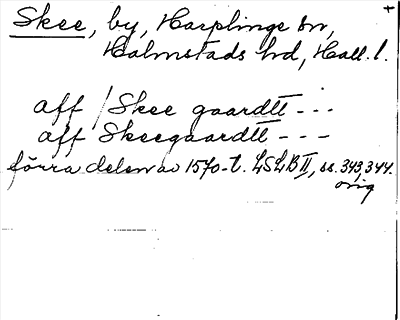 Skee, by, Harplinge sn,
Halmstads hd, Hall. l.
aff / Skee gaardtt ---
aff Skeegaardtt ---
förra delen av 1570-t. LSLB II, ss. 343, 344.
orig